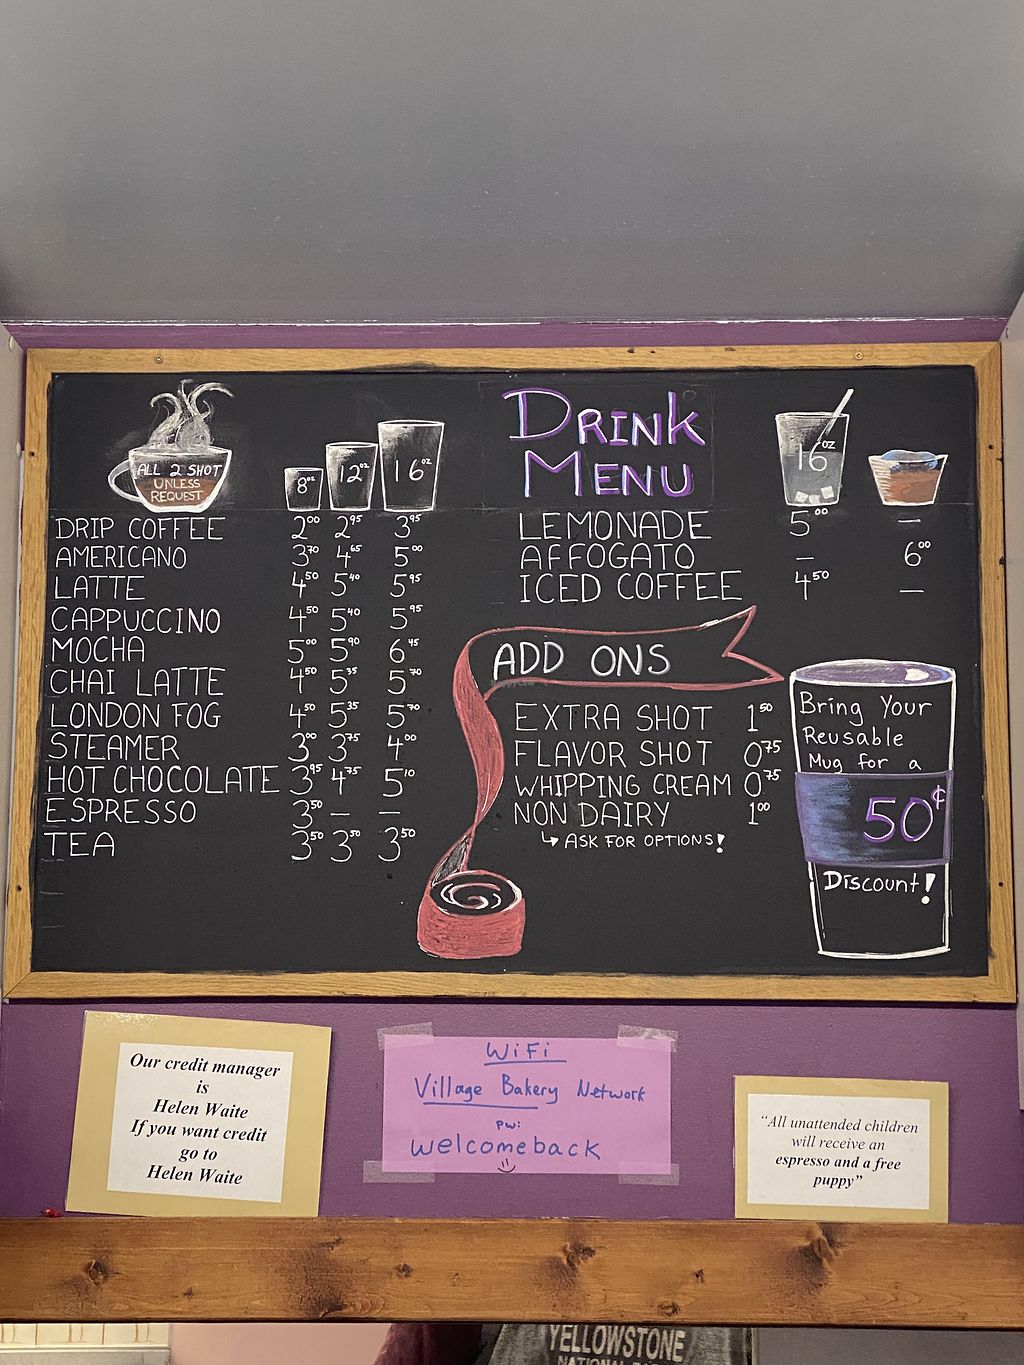 ALL 2 SHOT
UNLESS
REQUEST
8oz 12oz 16oz
DRIP COFFEE 2.00 2.95 3.95
AMERICANO 3.70 4.65 5.00
LATTE 4.50 5.40 5.95
CAPPUCCINO 4.50 5.40 5.95
MOCHA 5.00 5.90 6.45
CHAI LATTE 4.50 5.35 5.70
LONDON FOG 4.50 5.35 5.70
STEAMER 3.00 3.75 4.00
HOT CHOCOLATE 3.95 4.75 5.10
ESPRESSO 3.50 — —
TEA 3.50 3.50 3.50
DRINK
MENU
16oz
LEMONADE 5.00 —
AFFOGATO — 6.00
ICED COFFEE 4.50 —
ADD ONS
EXTRA SHOT 1.50
FLAVOR SHOT 0.75
WHIPPING CREAM 0.75
NON DAIRY 1.00
↳ ASK FOR OPTIONS!
Bring Your
Reusable
Mug for a
50¢
Discount!
Our credit manager
is
Helen Waite
If you want credit
go to
Helen Waite
WiFi
Village Bakery Network
pw:
welcomeback
"All unattended children
will receive an
espresso and a free
puppy"
YELLOWSTONE